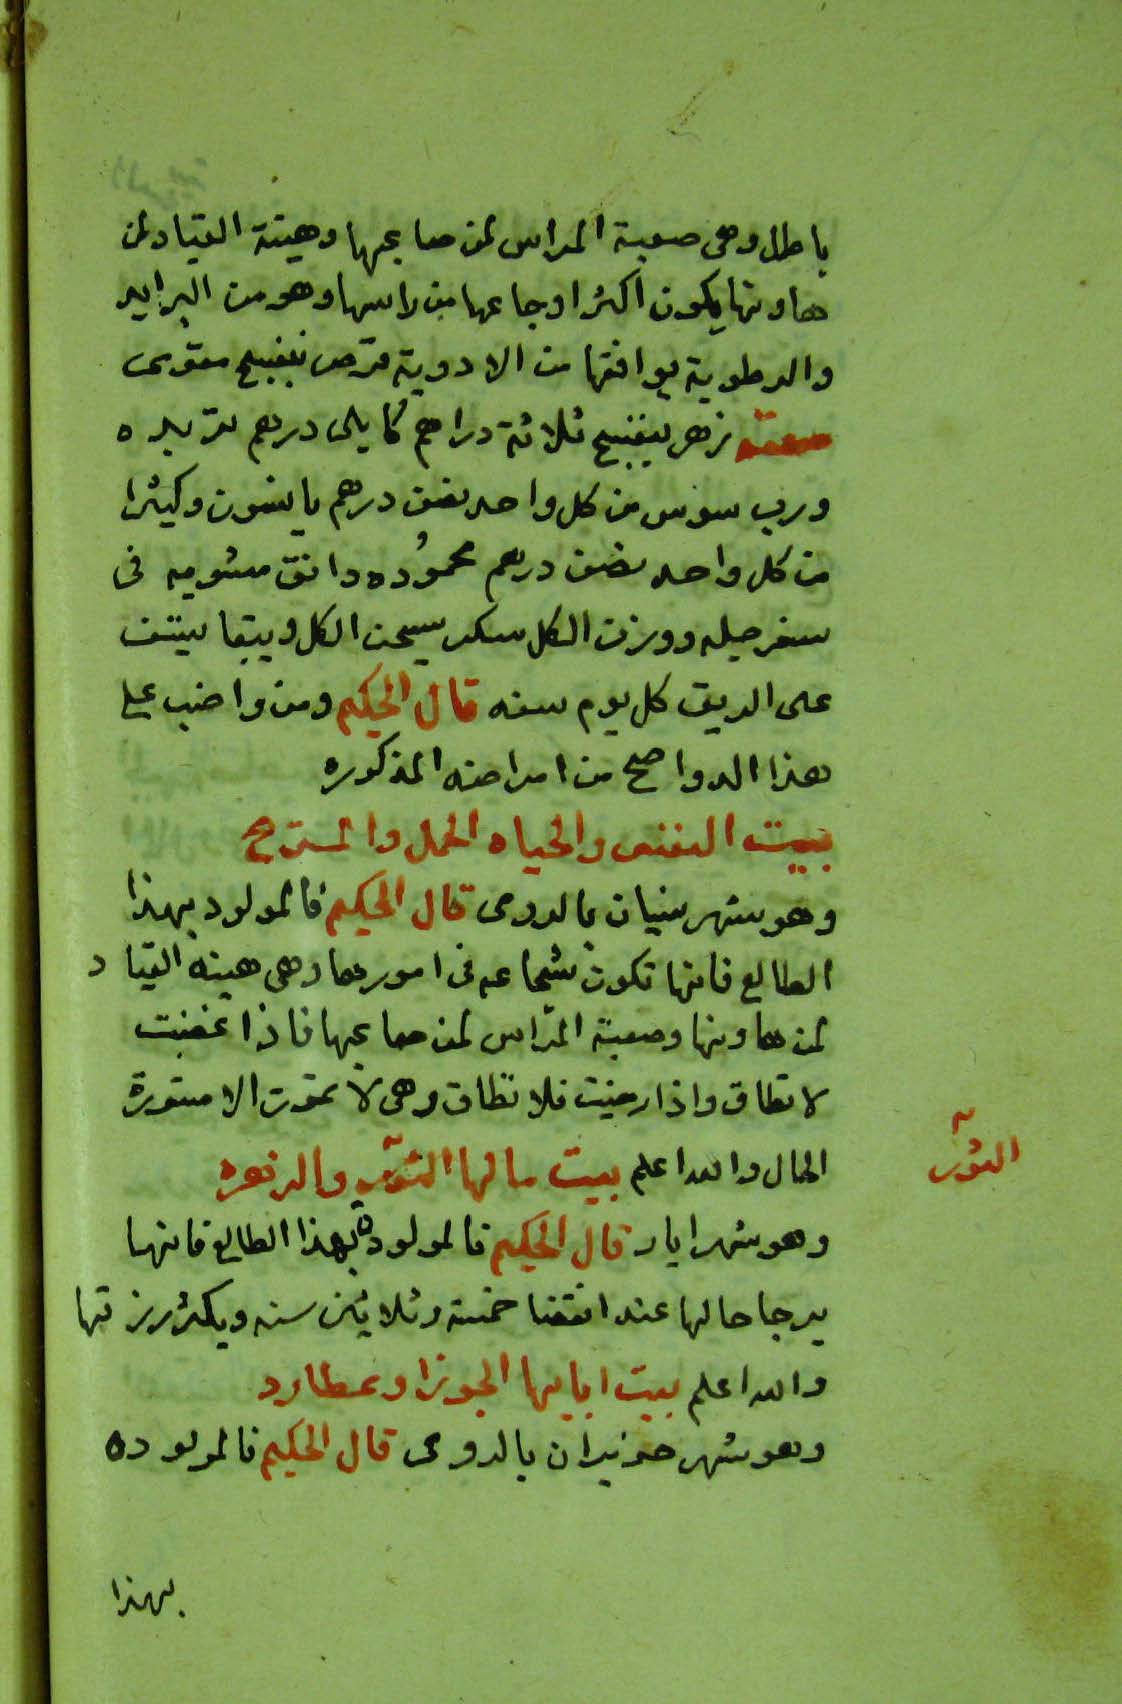 باطل وهى صعبة المراس لمن صاعبها وهينة القياد لمن
هاونها يكون اكثر اوجاعها من راسها وهو من البرايد
والرطوبة يوافقها من الادوية قرص بنفسج مقوى
صفته زهر بنفسج ثلاثة دراهم كابلى درهم تربده
ورب سوس من كل واحد نصف درهم يانسون وكيثرا
من كل واحد نصف درهم محموده دانق مشويه فى
سفرجله ووزن الكل سكر يسحق الكل ويبقا يستف
على الريق كل يوم سفه قال الحكيم ومن واضب على
هذا الدوا صح من امراضه المذكوره
بيت النفس والحياه الحمل والمريخ
وهو شهر نيسان بالرومى قال الحكيم فالمولود بهذا
الطالع فانها تكون شجاعه فى امورها وهى هينة القياد
لمن هاونها وصعبة المراس لمن صاعبها فاذا غضبت
لا تطاق واذا رضيت فلا تطاق وهى لا تموت الا مستورة
الحال والله اعلم بيت مالها الثور والزهره
وهو شهر ايار قال الحكيم فالمولودة بهذا الطالع فانها
يرجا حالها عند انقضا خمسة وثلاثين سنه ويكثر رزقها
والله اعلم بيت ابايها الجوزا وعطارد
وهو شهر حزيران بالرومى قال الحكيم فالمولوده
بهذا
الثور